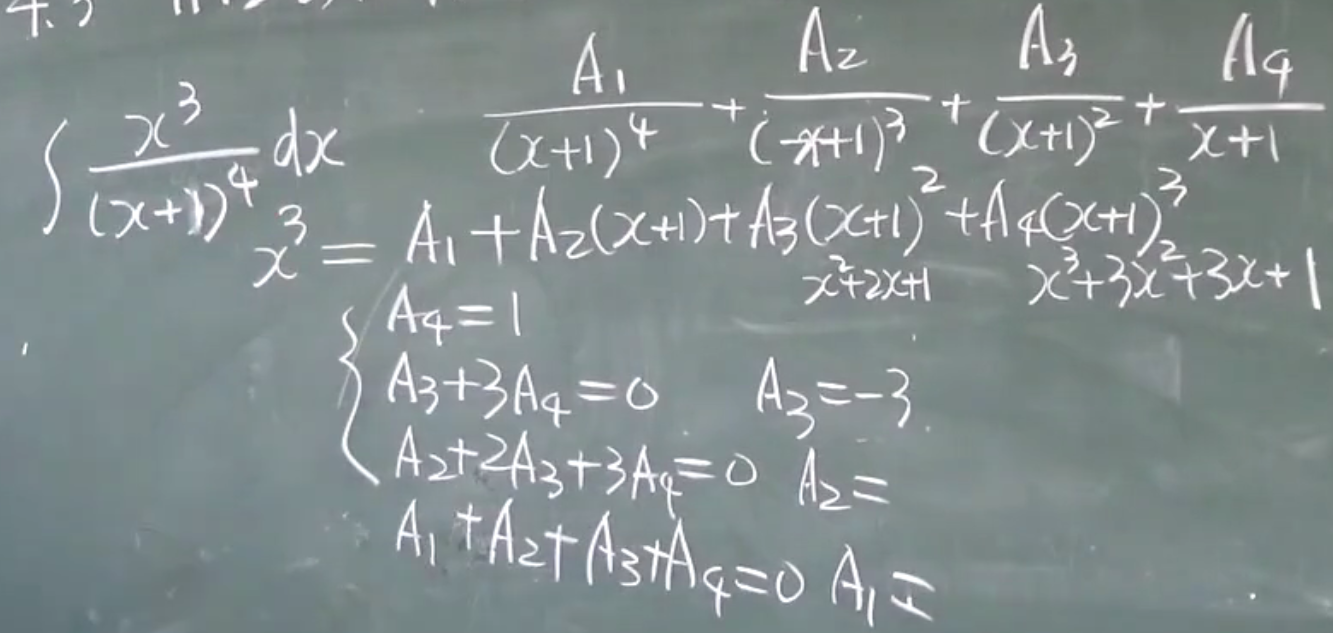 4.3
∫ x³/(x+1)⁴ dx    A₁/(x+1)⁴ + A₂/(x+1)³ + A₃/(x+1)² + A₄/x+1
x³ = A₁+A₂(x+1)+A₃(x+1)²+A₄(x+1)³
x²+2x+1    x³+3x²+3x+1
A₄=1
A₃+3A₄=0    A₃=-3
A₂+2A₃+3A₄=0    A₂=
A₁+A₂+A₃+A₄=0    A₁=